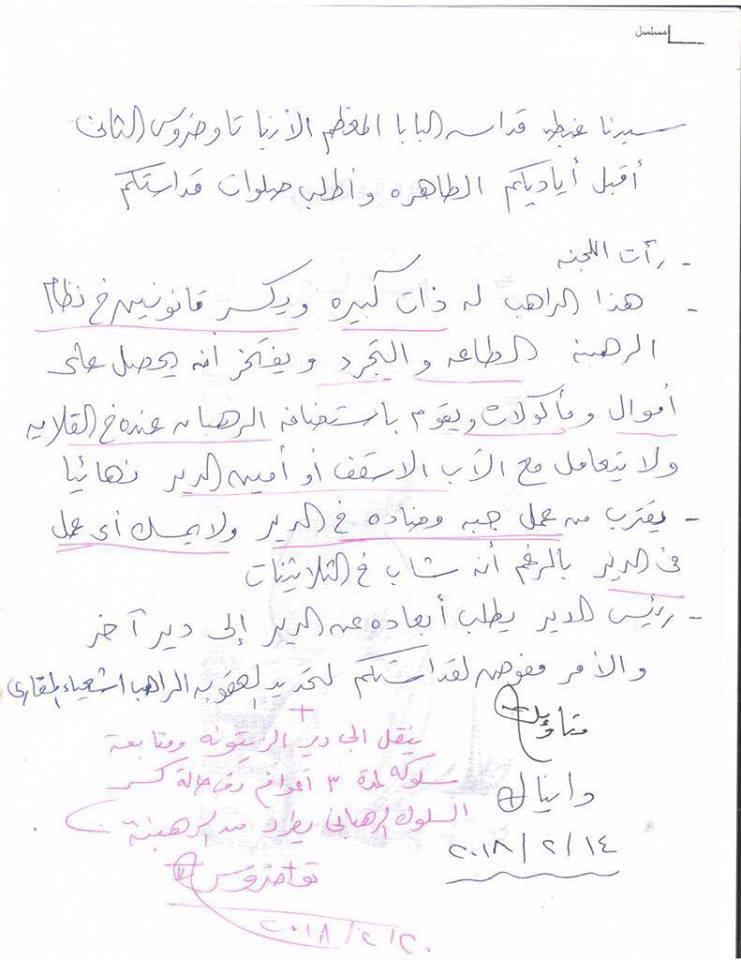 مسلسل
سيدنا غبطه قداسه البابا المعظم الأنبا تاوضروس الثانى
أقبل أياديكم الطاهره وأطلب صلوات قداستكم
- رأت اللجنه
- هذا الراهب له ذات كبيره ويكسر قانونين فى نظام
الرهبنه الطاعه والتجرد ويفتخر أنه يحصل على
أموال ومأكولات ويقوم باستضافه الرهبان عنده فى القلايه
ولا يتعامل مع الأب الاسقف أو أمين الدير نهائيا
- يقترب من عمل جبهه مضاده فى الدير ولا يمسك أى عمل
فى الدير بالرغم أنه شاب فى الثلاثينات
- رئيس الدير يطلب أبعاده عن الدير إلى دير آخر
والأمر مفوض لقداستكم لتحديد العقوبه الراهب اشعياء المقارى
ينقل الى دير الزيتونه ومتابعة
سلوكه لمدة ٣ أعوام وفى حالة كسر
السلوك الرهبانى يطرد من الرهبنة
تواضروس
٢٠١٨/٢/٢٠
متاؤس
دانيال
٢٠١٨/٢/١٤